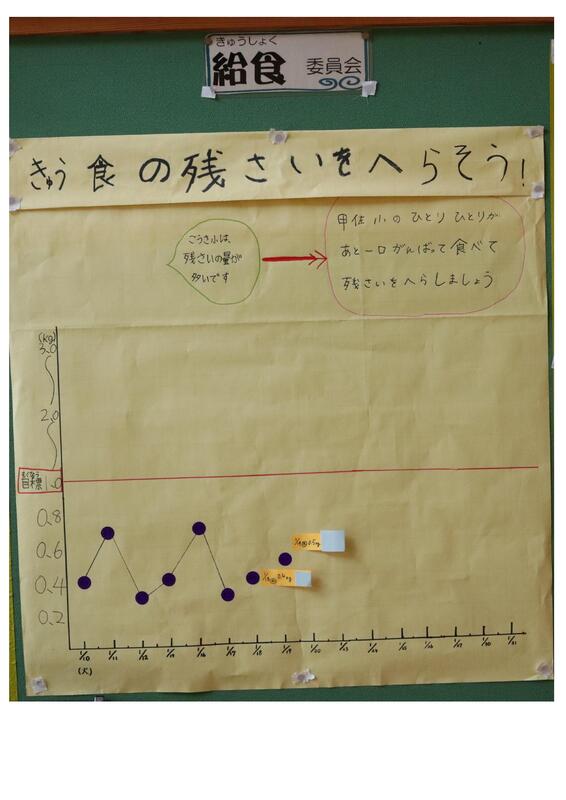 きゅうしょく
給食 委員会
きゅう食の残さいをへらそう!
こうさ小は、
残さいの量が
多いです
甲佐小のひとりひとりが
あと一口がんばって食べて
残さいをへらしましょう
(kg)
3.0
2.0
もくひょう
目標 1.0
0.8
0.6
0.4
0.2
1/10 1/11 1/12 1/13 1/16 1/17 1/18 1/19 1/20
(火)